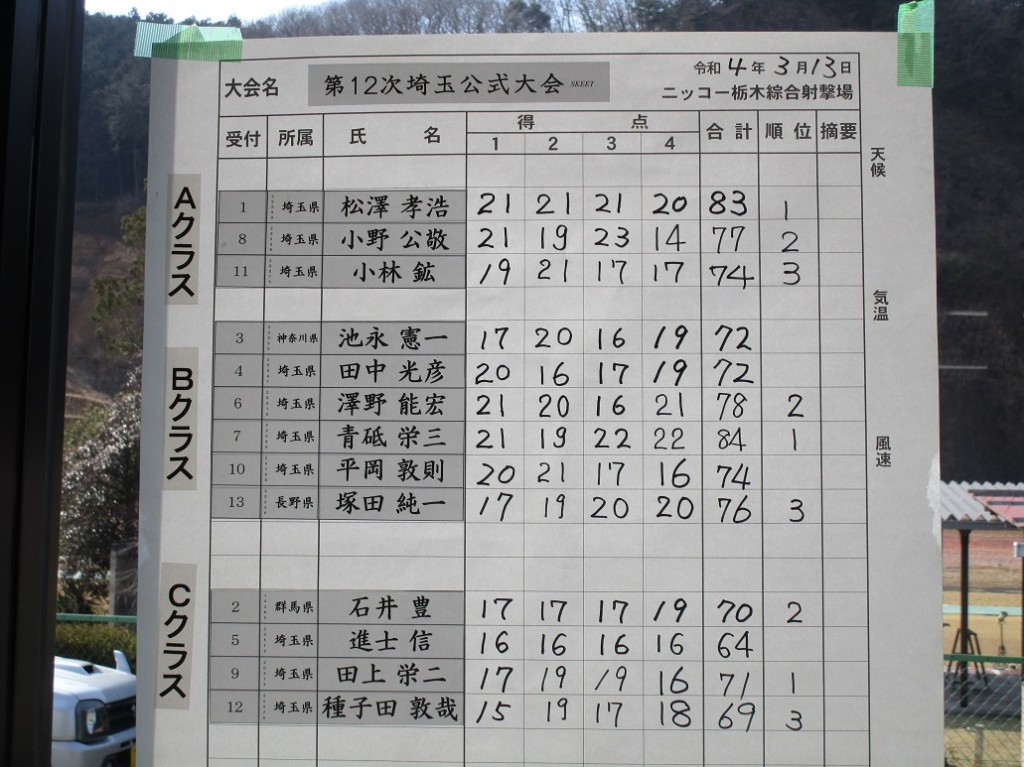 大会名 第12次埼玉公式大会 SKEET 令和4年3月13日
ニッコー栃木綜合射撃場
受付 所属 氏名 得点 合計 順位 摘要
1 2 3 4
天候
気温
風速
Aクラス
1 埼玉県 松澤 孝浩 21 21 21 20 83 1
8 埼玉県 小野 公敬 21 19 23 14 77 2
11 埼玉県 小林 鉱 19 21 17 17 74 3
Bクラス
3 神奈川県 池永 憲一 17 20 16 19 72
4 埼玉県 田中 光彦 20 16 17 19 72
6 埼玉県 澤野 能宏 21 20 16 21 78 2
7 埼玉県 青砥 栄三 21 19 22 22 84 1
10 埼玉県 平岡 敦則 20 21 17 16 74
13 長野県 塚田 純一 17 19 20 20 76 3
Cクラス
2 群馬県 石井 豊 17 17 17 19 70 2
5 埼玉県 進士 信 16 16 16 16 64
9 埼玉県 田上 栄二 17 19 19 16 71 1
12 埼玉県 種子田 敦哉 15 19 17 18 69 3